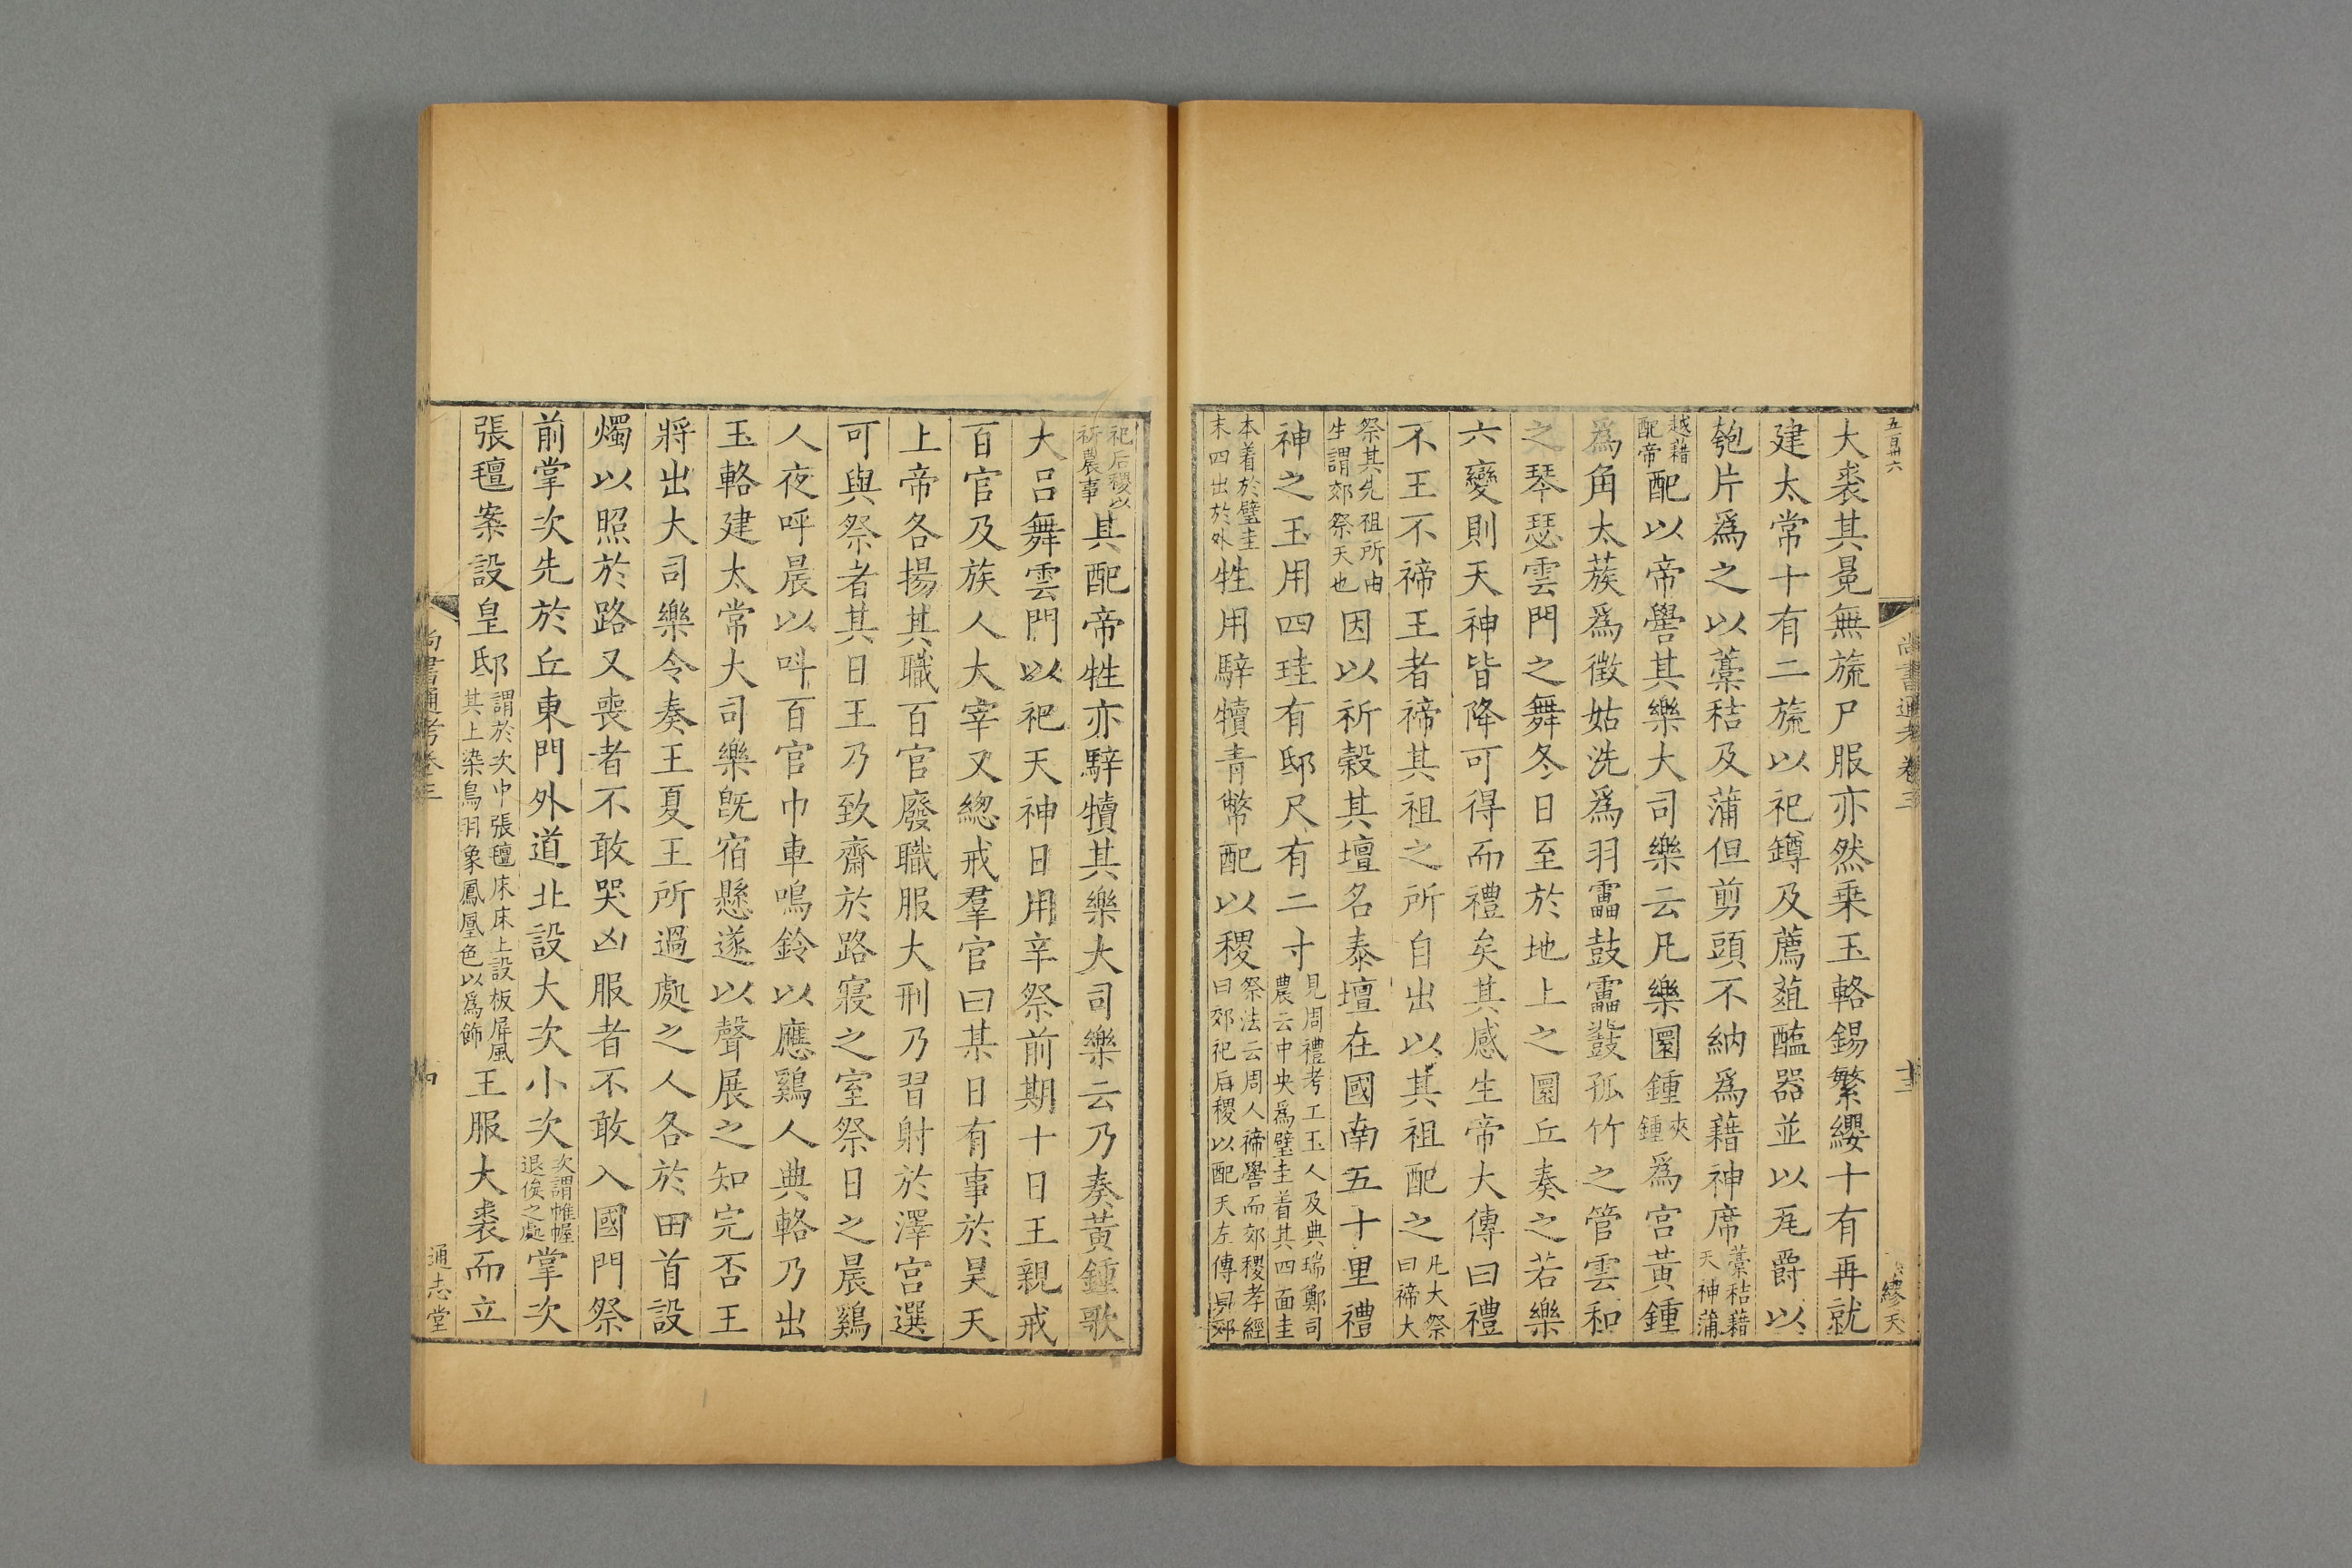 五百卅六
尚書通考卷三
十三
繆天
大裘其冕無旒尸服亦然乗玉輅錫繁纓十有再就
建太常十有二旒以祀罇及薦葅醢器並以𤬪爵以
匏片爲之以藁秸及蒲但剪頭不納爲藉神席藁秸藉天神蒲
越藉配帝配以帝嚳其樂大司樂云凡樂圜鍾夾鍾爲宫黃鍾
爲角太蔟爲徵姑洗爲羽靁鼓靁鼗孤竹之管雲和
之琴瑟雲門之舞冬日至於地上之圜丘奏之若樂
六變則天神皆降可得而禮矣其感生帝大傳曰禮
不王不禘王者禘其祖之所自出以其祖配之凡大祭曰禘大
祭其先祖所由生謂郊祭天也因以祈穀其壇名泰壇在國南五十里禮
神之玉用四珪有邸尺有二寸見周禮考工玉人及典瑞鄭司農云中央爲璧圭着其四面圭
本着於璧圭末四出於外牲用騂犢青幣配以稷祭法云周人禘嚳而郊稷孝經曰郊祀后稷以配天左傳曰郊
祀后稷以祈農事其配帝牲亦騂犢其樂大司樂云乃奏黃鍾歌
大吕舞雲門以祀天神日用辛祭前期十日王親戒
百官及族人大宰又緫戒羣官曰某日有事於昊天
上帝各揚其職百官廢職服大刑乃習射於澤宫選
可與祭者其日王乃致齋於路寢之室祭日之晨鷄
人夜呼晨以呌百官巾車鳴鈴以應鷄人典輅乃出
玉輅建太常大司樂旣宿懸遂以聲展之知完否王
將出大司樂令奏王夏王所過處之人各於田首設
燭以照於路又喪者不敢哭凶服者不敢入國門祭
前掌次先於丘東門外道北設大次小次次謂帷幄退俟之處掌次
張氊案設皇邸謂於次中張氊床床上設板屏風其上染鳥羽象鳳凰色以爲飾王服大裘而立
尚書通考卷三
通志堂